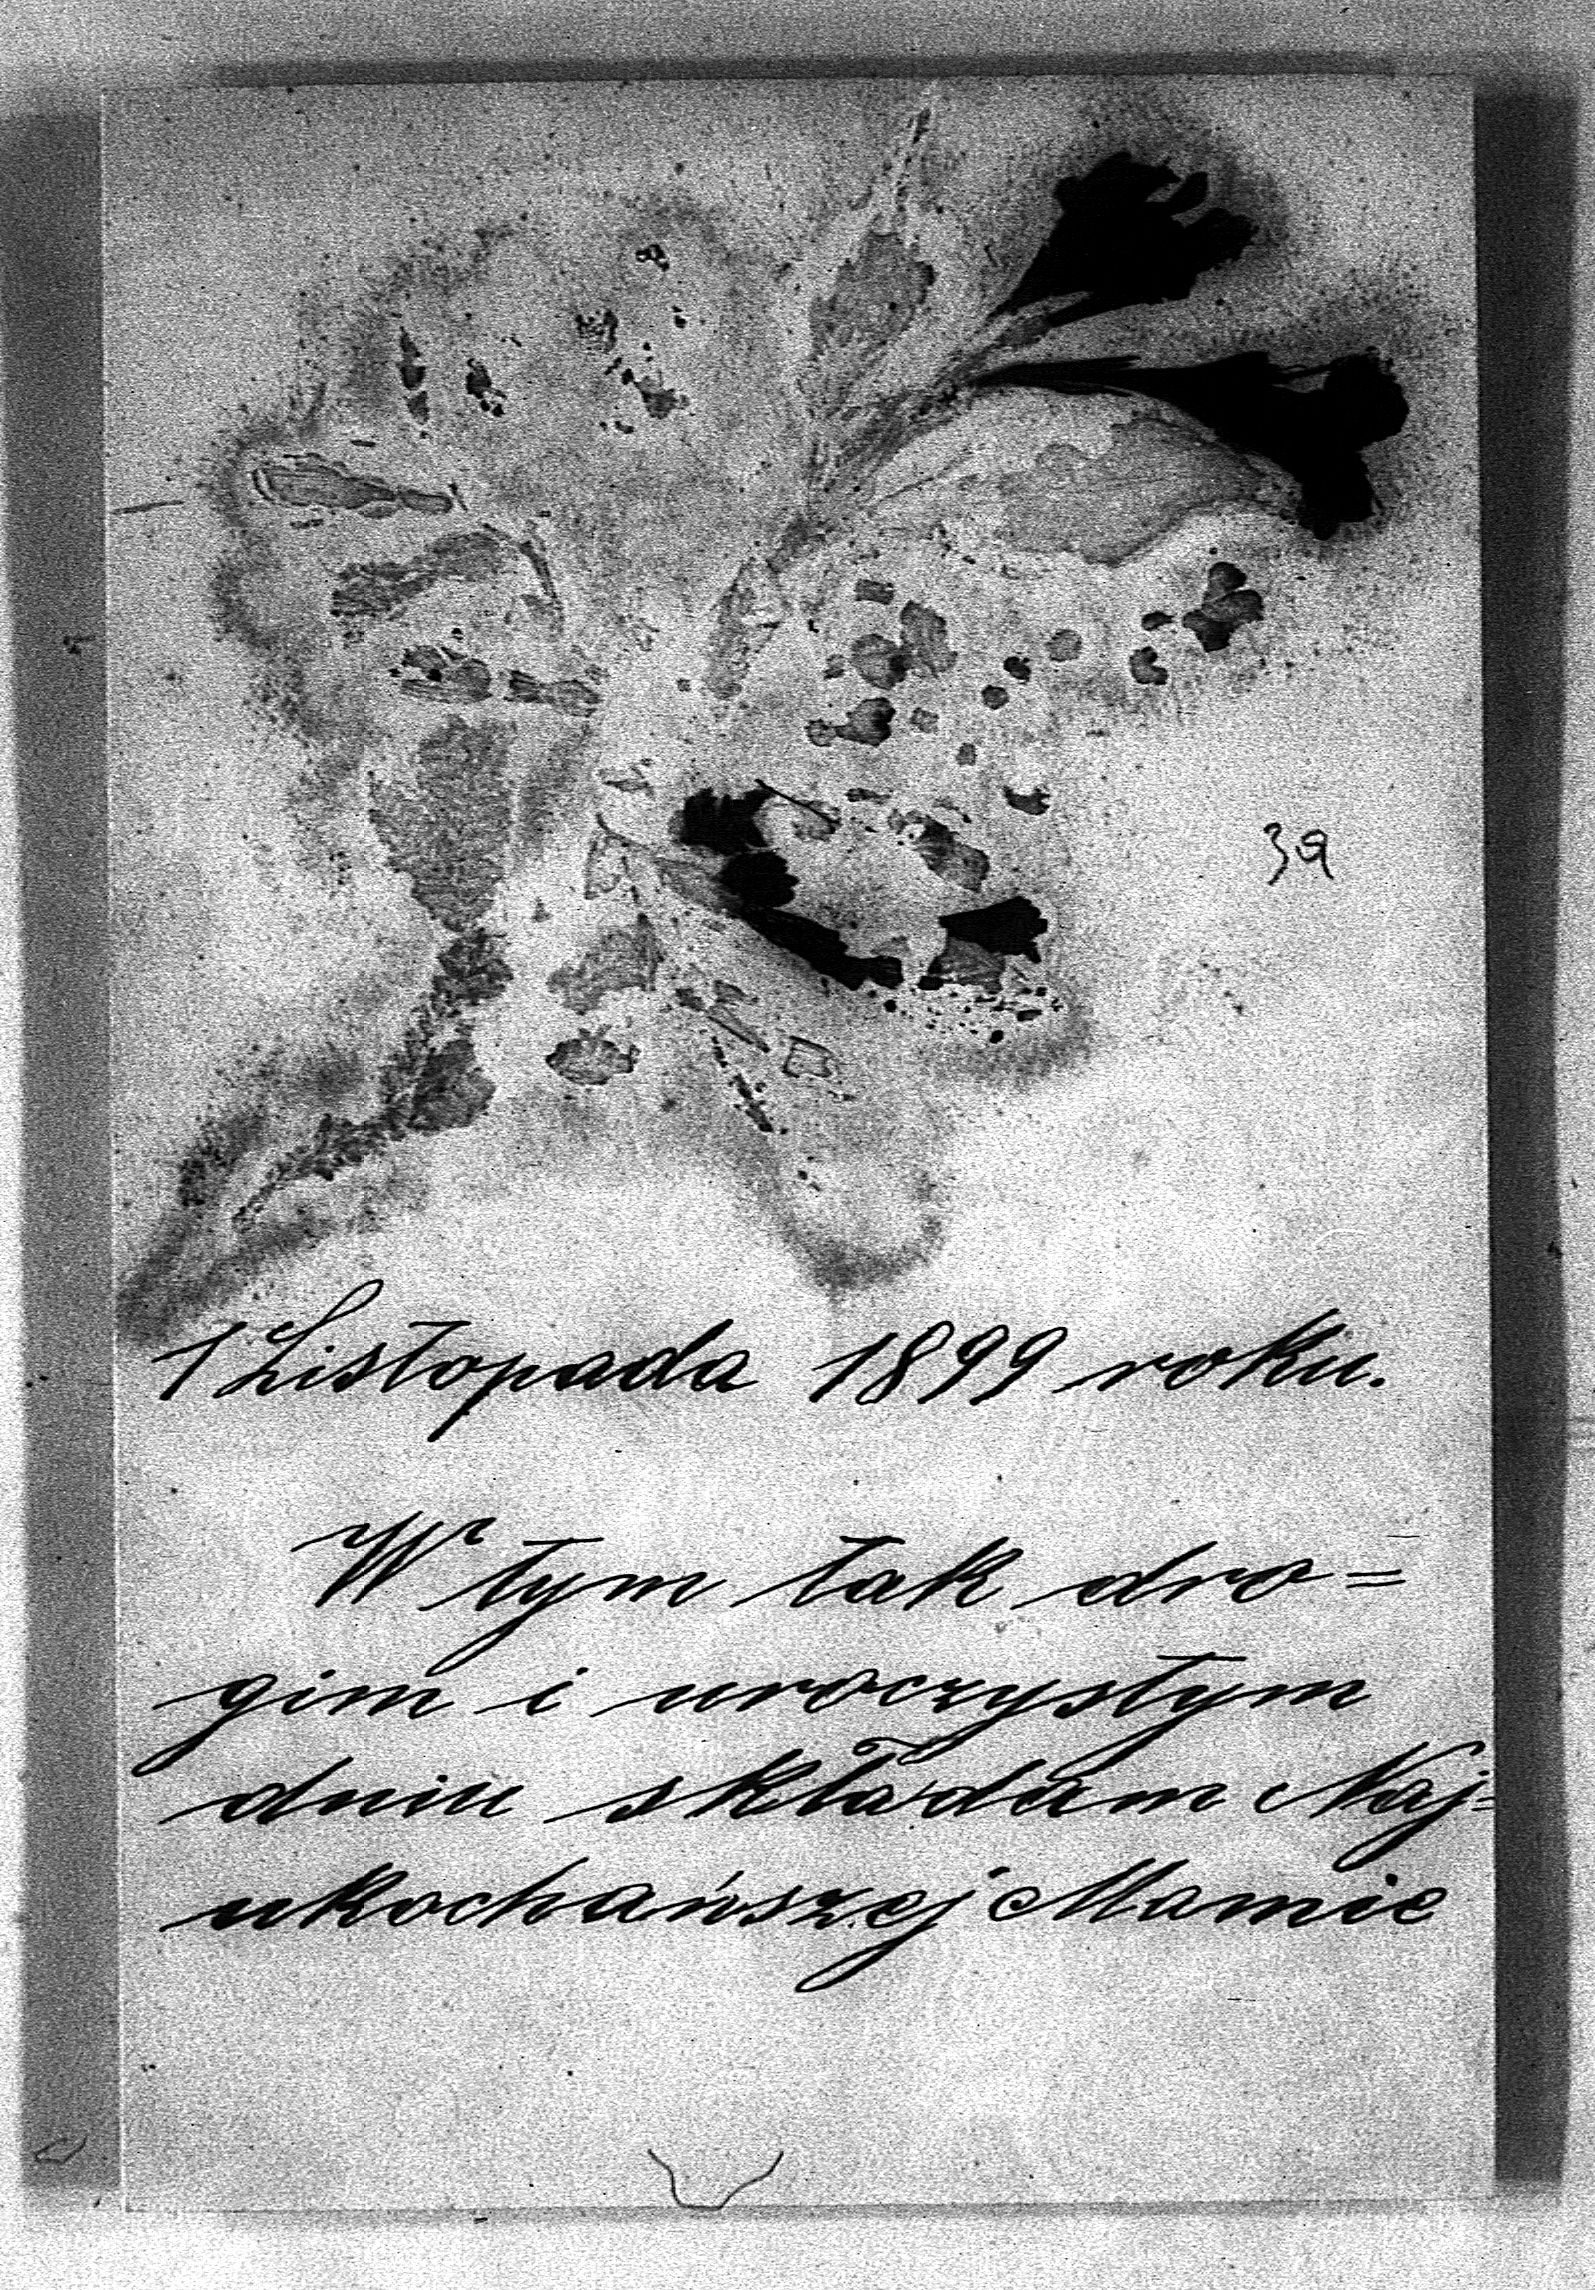 39
1 Listopada 1899 roku.
W tym tak dro=
gim i uroczystym
dniu składam Naj=
ukochańszej Mamie